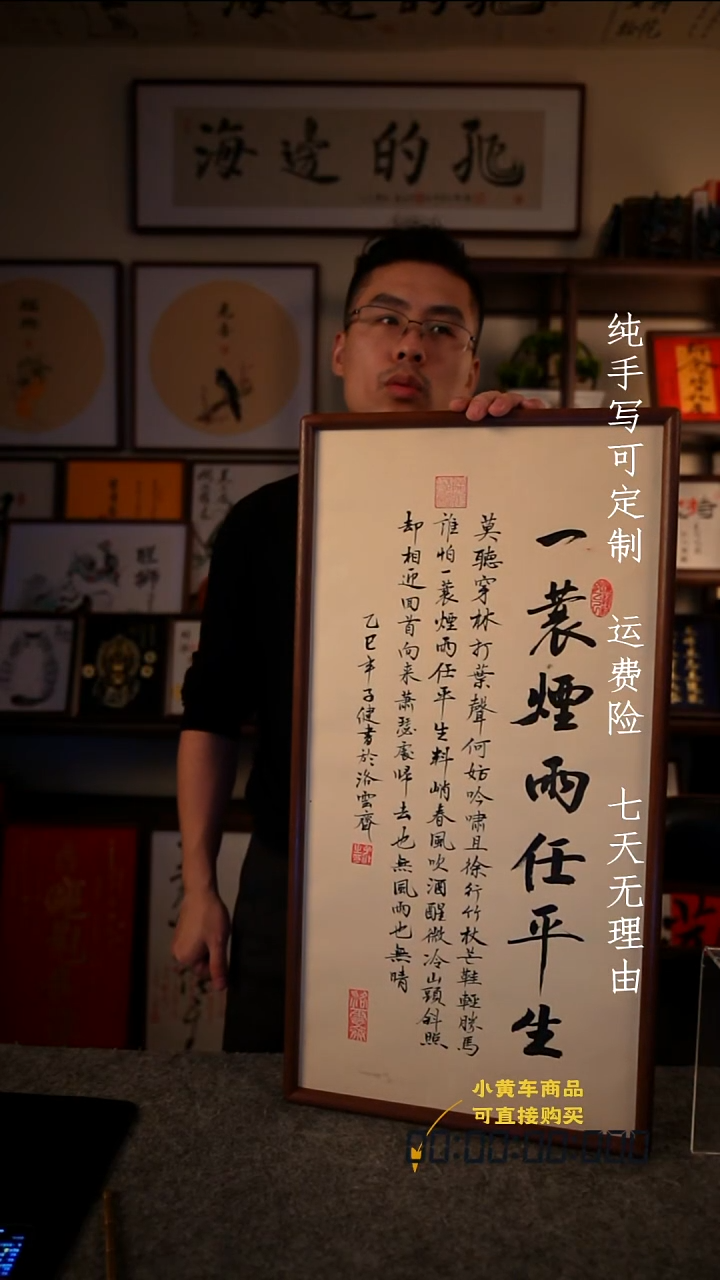 海邊的
一蓑煙雨任平生
莫聽穿林打葉聲何妨吟嘯且徐行竹杖芒鞋輕勝馬
誰怕一蓑煙雨任平生料峭春風吹酒醒微冷山頭斜照
却相迎回首向来蕭瑟處歸去也無風雨也無晴
乙巳年子健書於洛雲齋
醒獅
纯手写可定制 运费险 七天无理由
小黄车商品
可直接购买
00:00:00:000